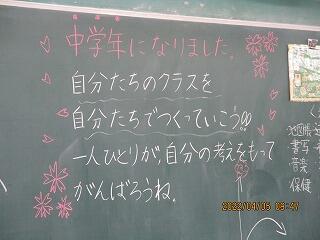 中学年になりました。
自分たちのクラスを
自分たちでつくっていこう!!
一人ひとりが、自分の考えをもって
がんばろうね。
書写
音楽
保健
2022/04/05 09:47